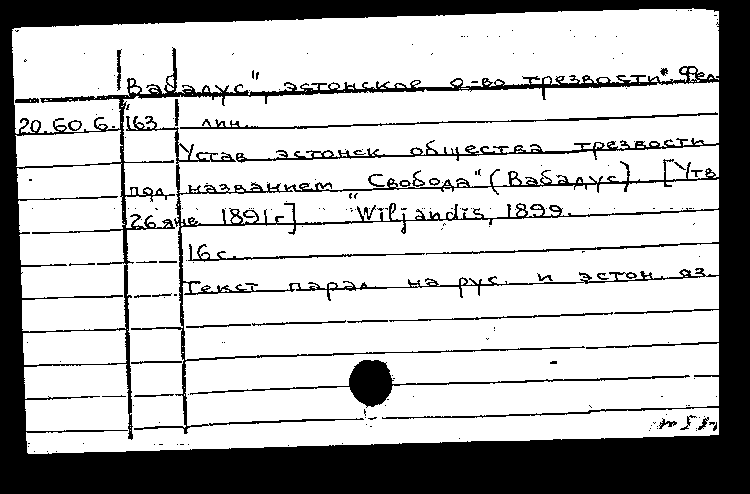 Вабадус", эстонское о-во трезвости" Фел-
20.60.6. 163 лин.
Устав эстонск общества трезвости
под названием "Свобода" (Вабадус). [Утв
26 янв 1891 г] Wiljandis, 1899.
16 с.
Текст парал на рус. и эстон. яз.